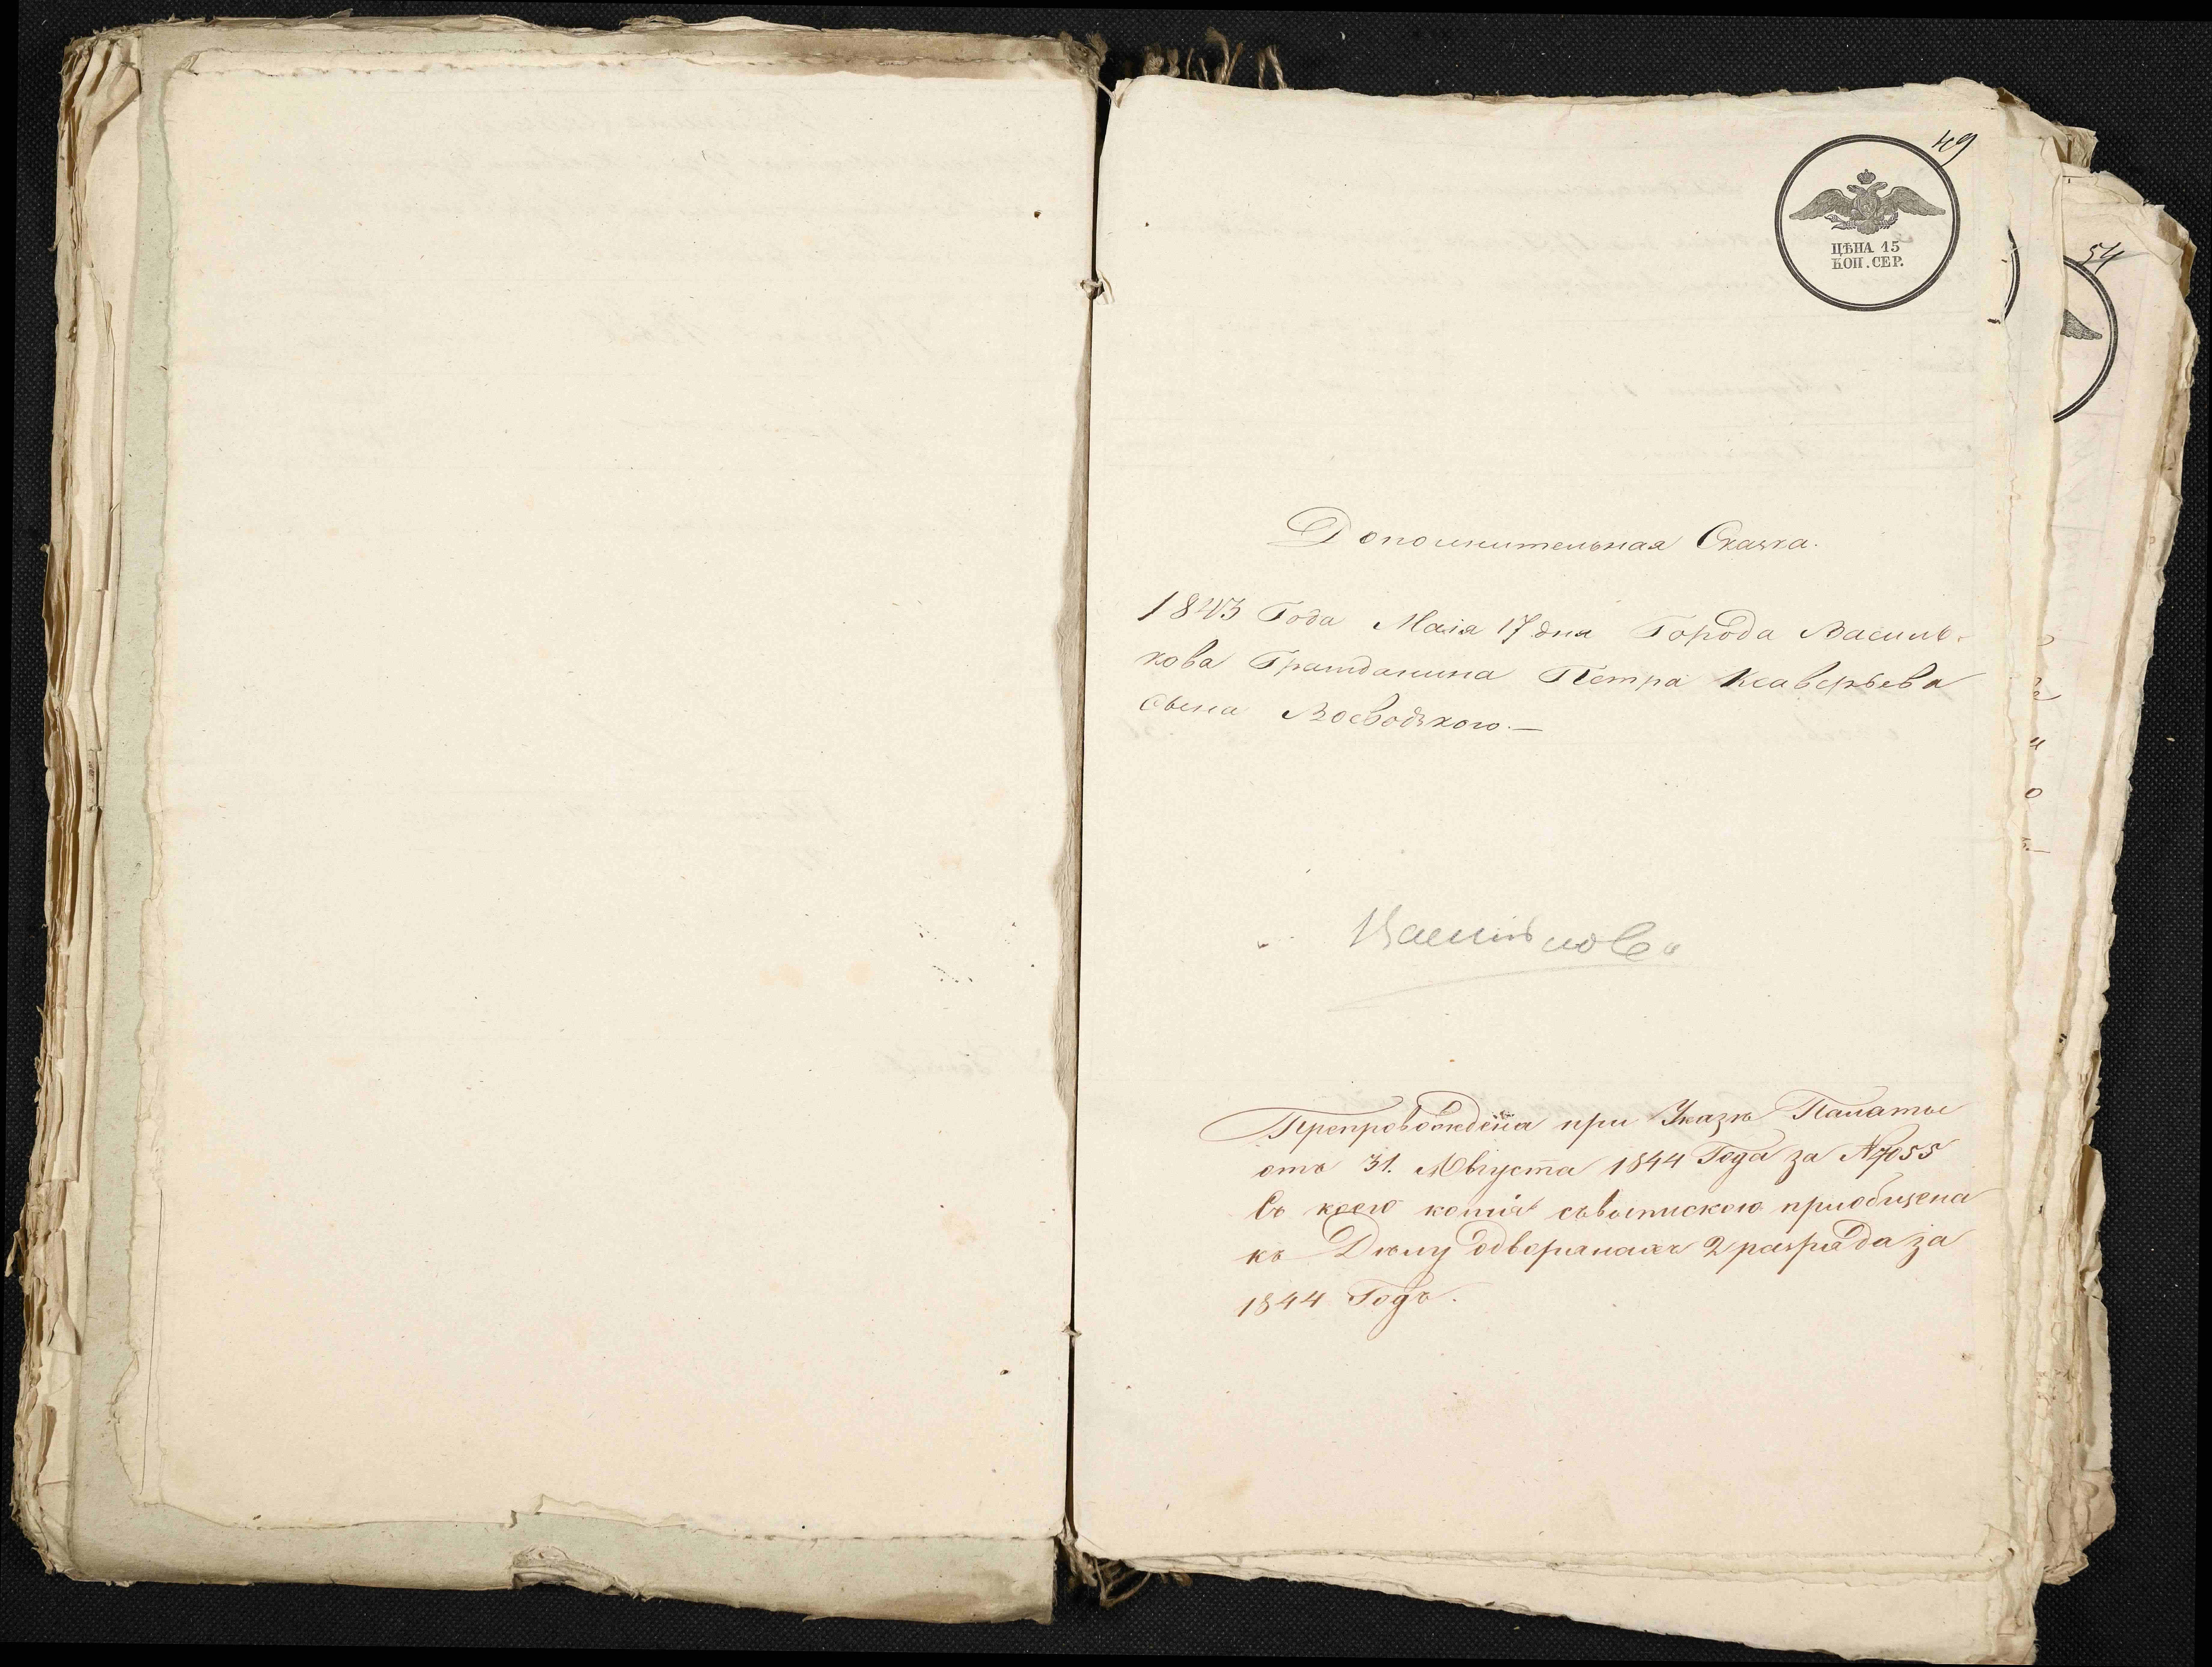 49
ЦѢНА 15
КОП. СЕР.
54
Дополнительная Сказка.
1843 Года Маія 17 дня Города Василь-
кова Гражданина Петра Ксаверьева
сына Воеводзкого.—
Васильковъ
Препровождена при Указѣ Палаты
отъ 31. Августа 1844 Года за № 7055
Съ коего копія съвыпискою приобщена
къ Дѣлу одворянахъ 2 разряда за
1844 Годъ.